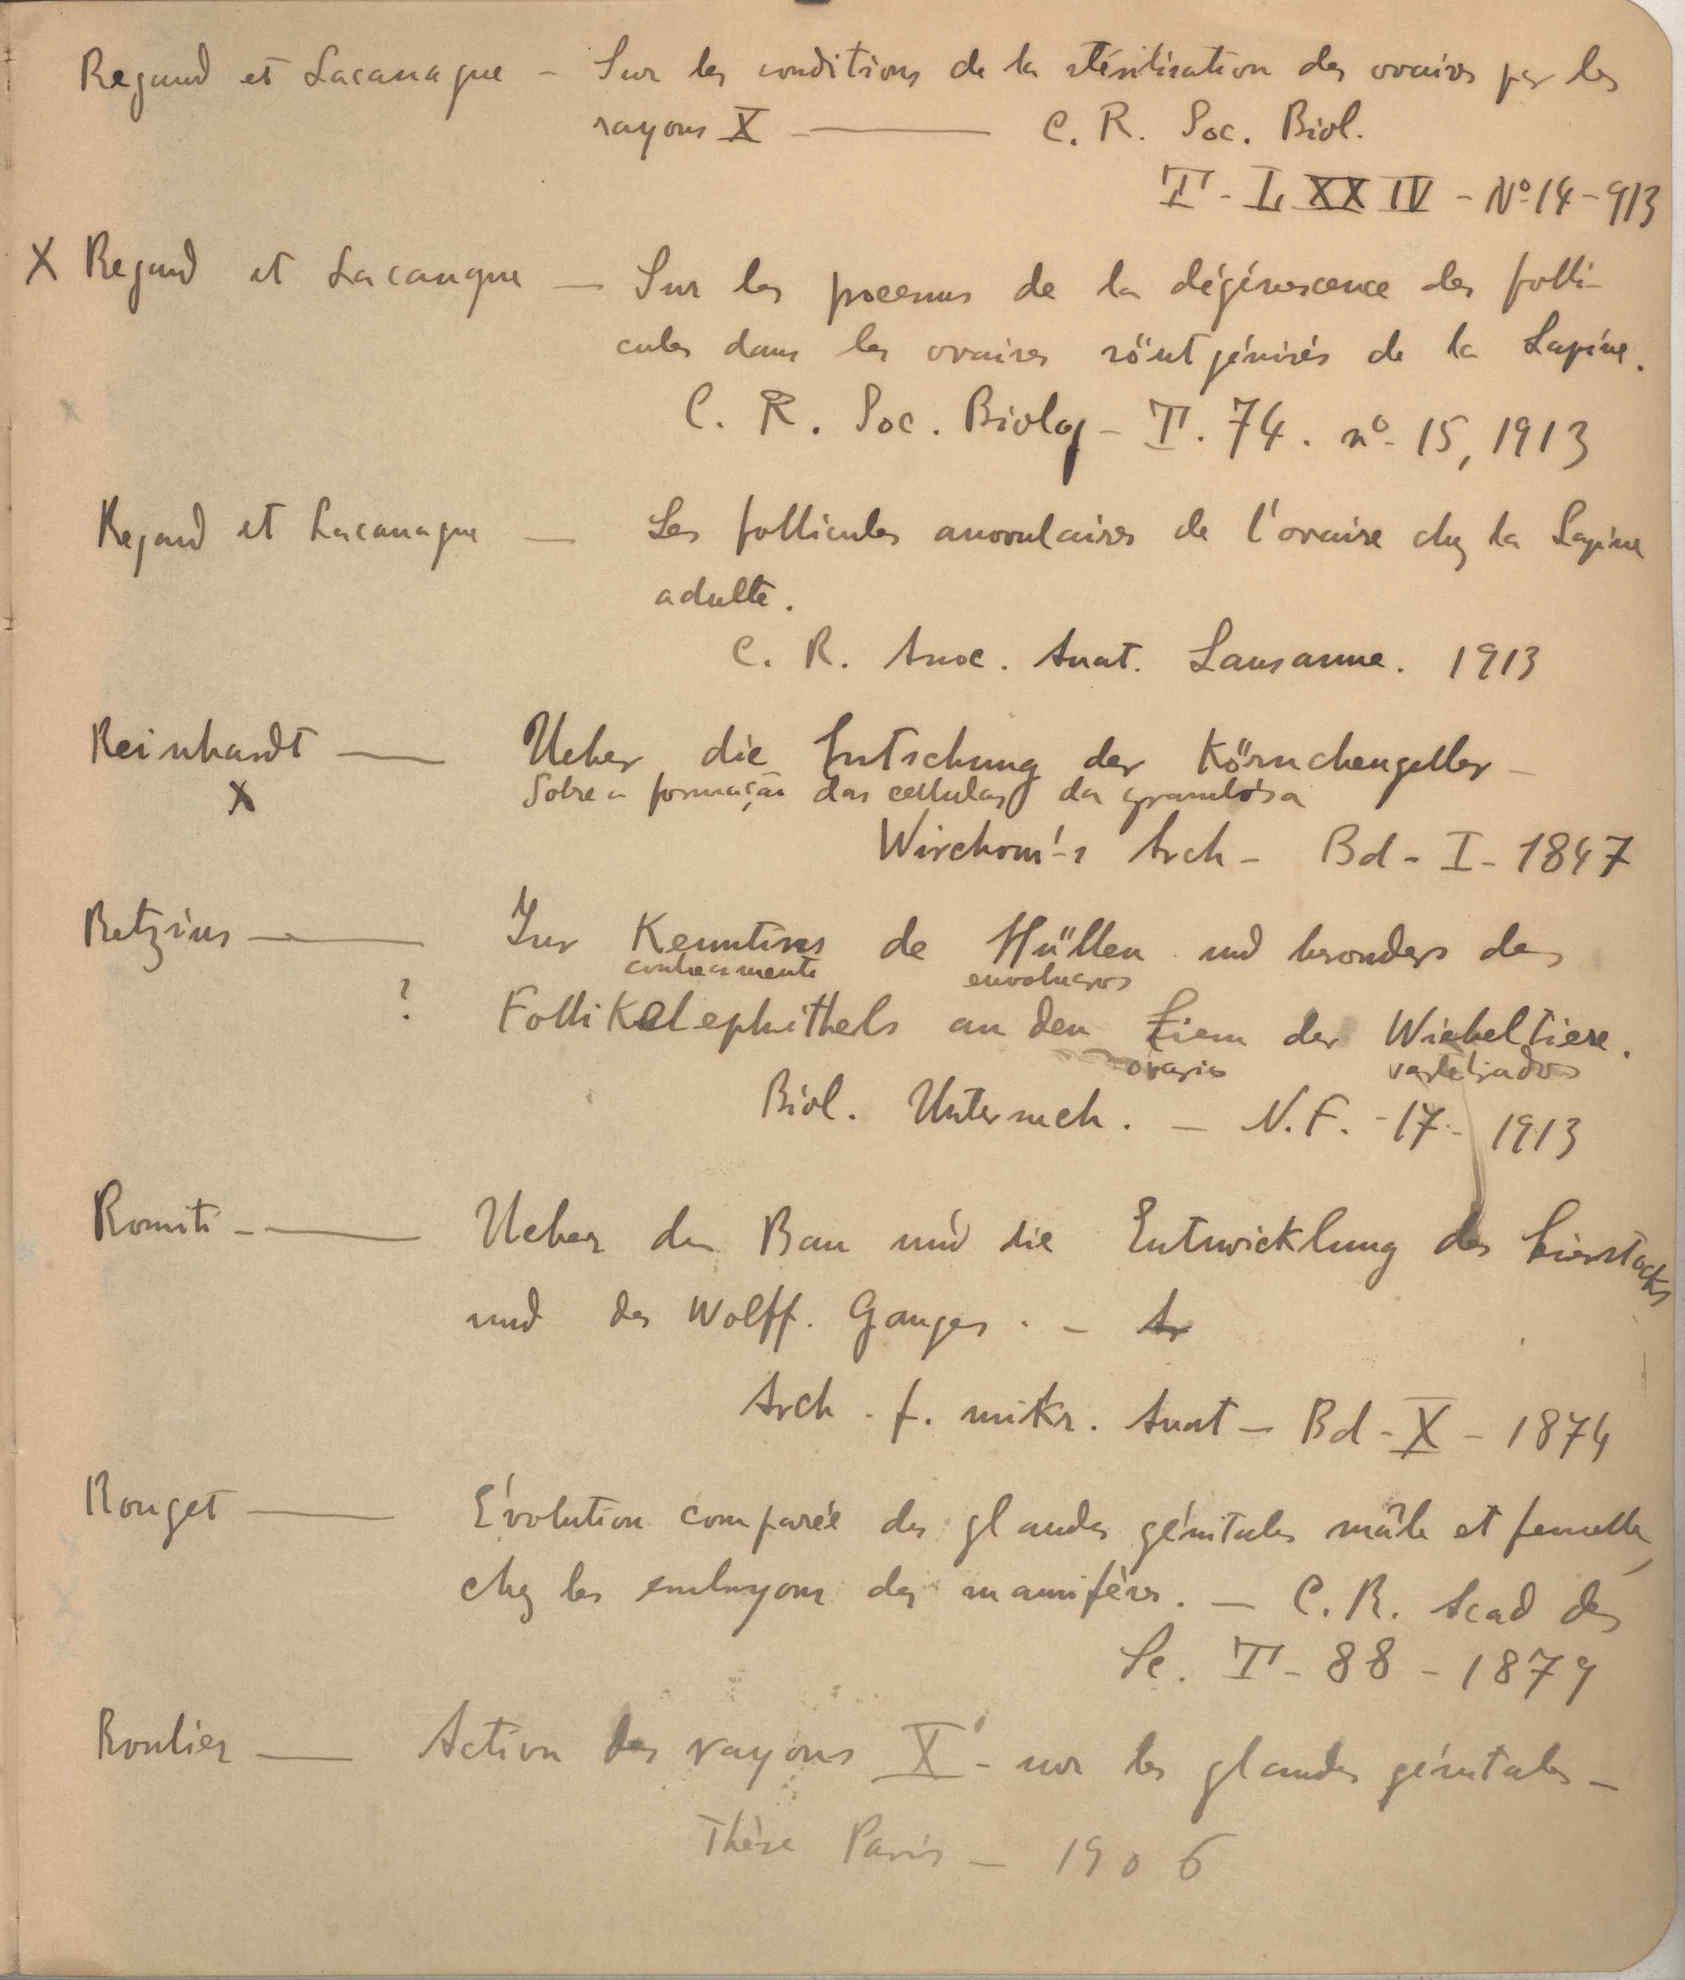 Regaud et Lacassagne - Sur les conditions de la stérilisation des ovaires par les
rayons X — C. R. Soc. Biol.
T - LXXIV - Nº 14 - 913
X Regaud et Lacassagne — Sur les processus de la dégénerescence des folli-
cules dans les ovaires röntgénisés de la Lapine.
C. R. Soc. Biolog - T. 74. nº 15, 1913
Regaud et Lacassagne — Les follicules anovulaires de l'ovaire chez la Lapine
adulte.
C. R. Assoc. Anat. Lausanne. 1913
Reinhardt — Ueber die Entschung der Körnchenzeller -
X Sobre a formação das cellulas da granulosa
Wirchow's Arch - Bd - I - 1847
Retzius — Zur Kenntnis de Hüllen und besonders des
conhecimento envolucros
? Follikelephithels an den Eiern der Wiebeltiere.
ovario vertebrados
Biol. Untersuch. — N. F. - 17 - 1913
Romiti — Ueber den Bau und die Entwicklung des Eierstocks
und des Wolff. Ganges. - Ar
Arch. f. mikr. Anat — Bd - X - 1874
Rouget — Évolution comparée des glandes génitales mâle et femelle,
chez les embryons des mamifères. — C. R. Acad des
Sc. T - 88 - 1879
Roulier — Action des rayons X - sur les glandes génitales -
Thèse Paris - 1906